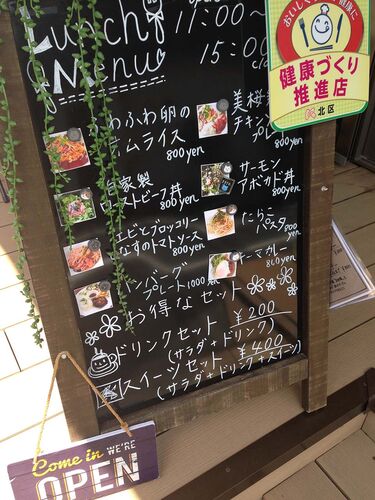 Lunch
Menu
11:00～
15:00
おいしく
健康づくり
推進店
北区
ふわ卵の
ムライス
800yen
美桜
チキン
プレ
800yen
自家製
ローストビーフ丼
800yen
サーモン
アボカド丼
800yen
エビとブロッコリー
なすのトマトソース
800yen
たらこ
パスタ
800yen
ハンバーグ
プレート 1000yen
キーマカレー
800yen
お得なセット
ドリンクセット ¥200
(サラダ+ドリンク)
スイーツセット ¥400
(サラダ+ドリンク+スイーツ)
Come in WE'RE
OPEN